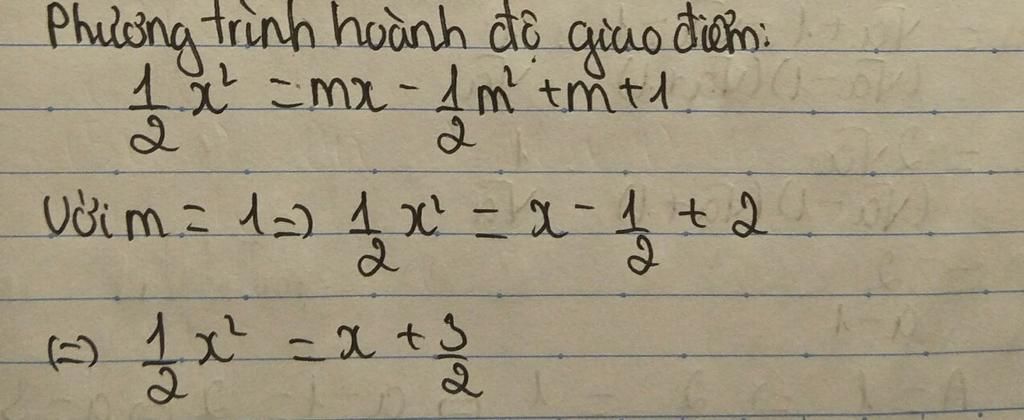 Phương trình hoành độ giao điểm:
1/2 x² = mx - 1/2 m² + m + 1
Với m = 1 => 1/2 x² = x - 1/2 + 2
(=) 1/2 x² = x + 3/2